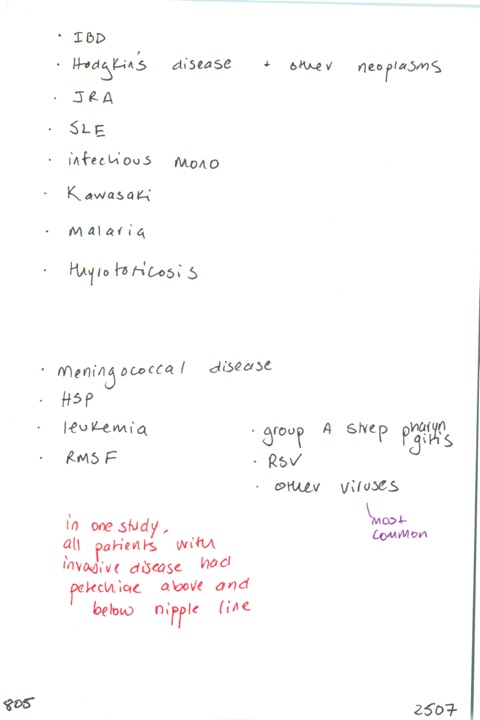 · IBD
· Hodgkin's disease + other neoplasms
· JRA
· SLE
· infectious mono
· Kawasaki
· malaria
· thyrotoxicosis
· meningococcal disease
· HSP
· leukemia
· RMSF
· group A strep pharyn
gitis
· RSV
· other viruses
most
common
in one study,
all patients with
invasive disease had
petechiae above and
below nipple line
805
2507